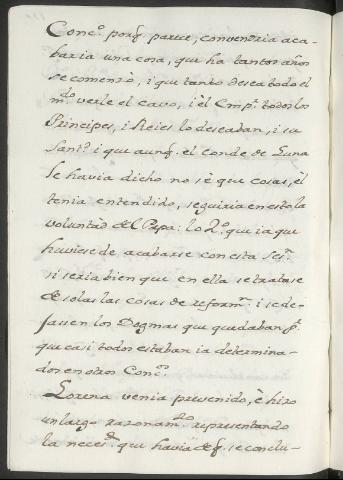 Conc.º porq. parece, convendria aca-
baria una cosa, que ha tantos años
se comenzò, i que tanto desea todo el
m.do verle el cavo, i èl Emp.r todos los
Principes, i Reies lo deseaban, i su
Sant.d i que aunq. el conde de Luna
le havia dicho no sè que cosas, èl
tenia entendido, seguiria en esto la
voluntàd del Papa: lo 2.º que ia que
huviese de acabarse con esta Ses.n
si seria bien que en ella se tratase
de solas las cosas de reform.n i se de-
jasen los Dogmas que quedaban p.r
que casi todos estaban ia determina-
dos en otros Conc.os
Lorena venia prevenido, è hizo
un largo razonam.to representando
la neces.d que havia de q. se conclu-